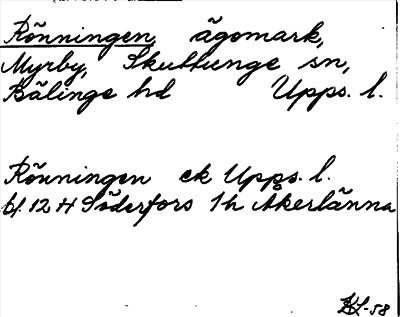 Rönningen, ägomark,
Myrby, Skuttunge sn,
Bälinge hd Upps. l.
Rönningen ek Upps. l.
bl. 12 H Söderfors 1h Åkerlänna
KL-58